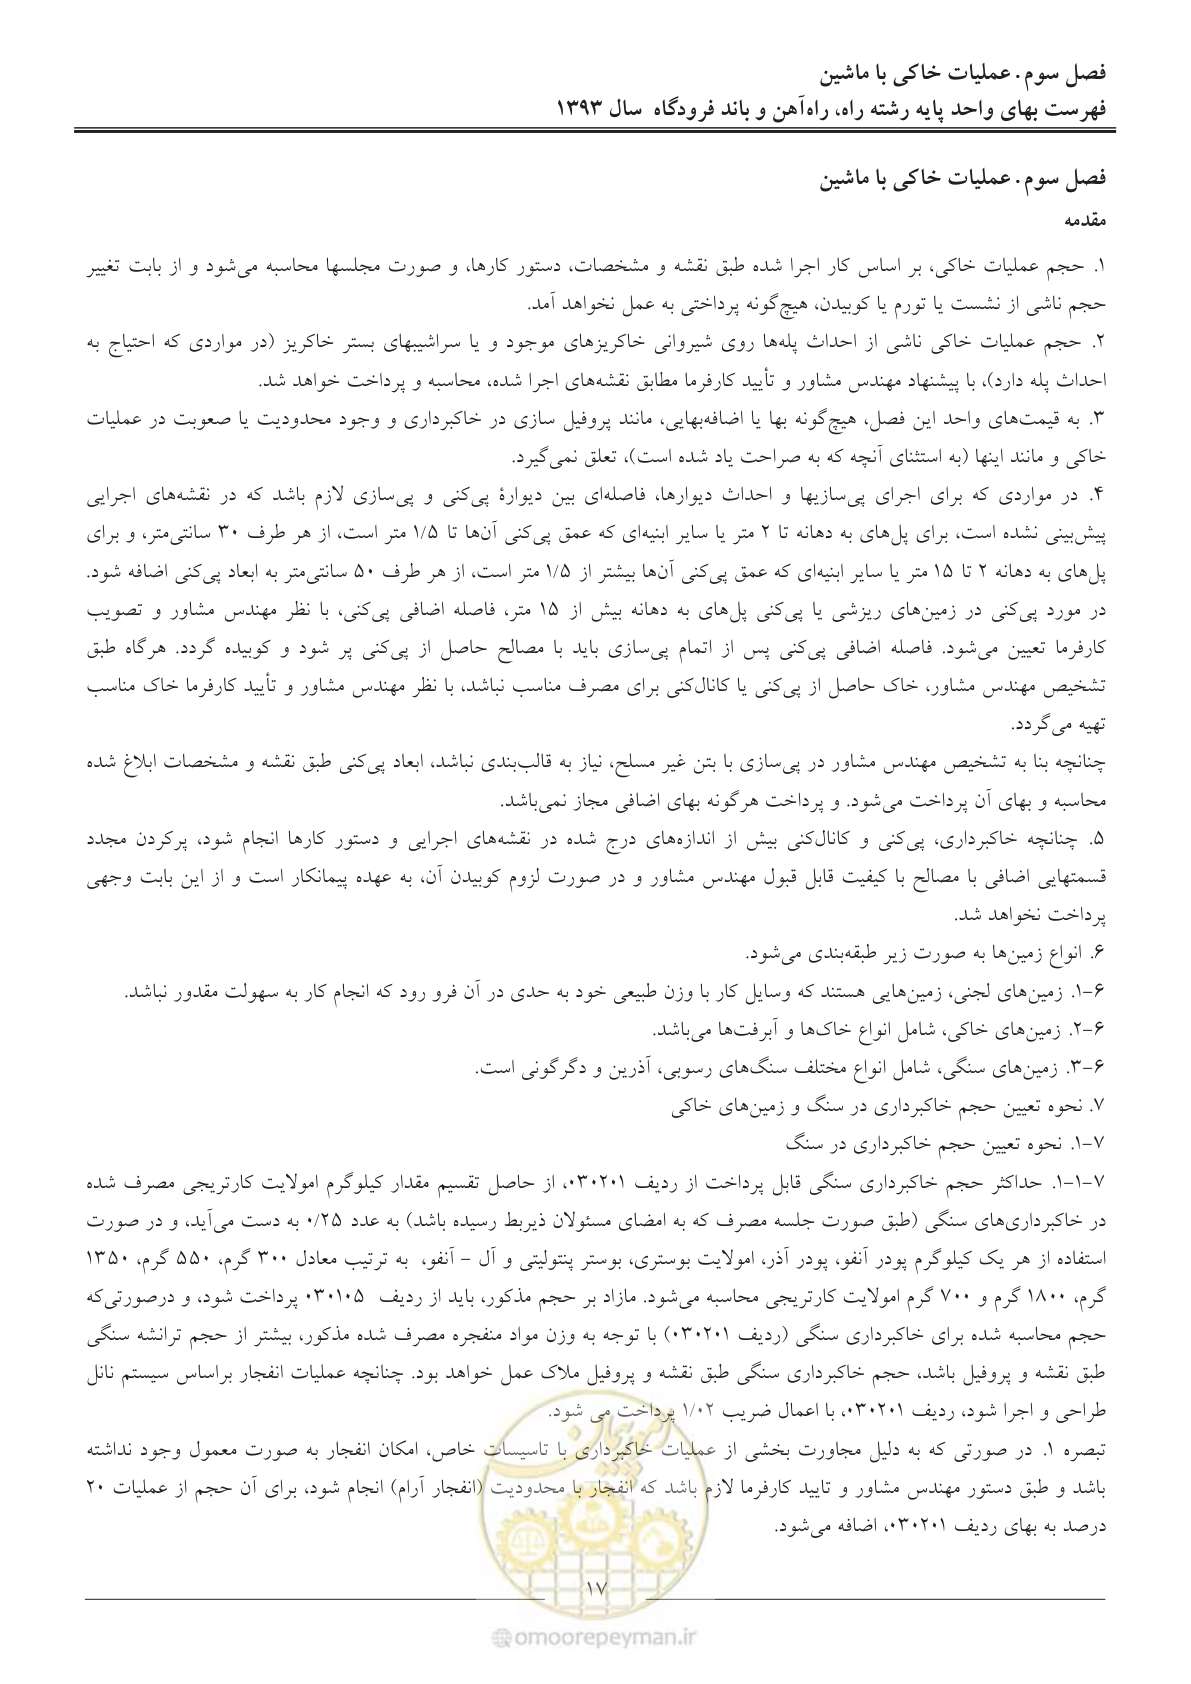 فصل سوم. عملیات خاکی با ماشین
فهرست بهای واحد پایه رشته راه، راه‌آهن و باند فرودگاه سال ۱۳۹۳
فصل سوم. عملیات خاکی با ماشین
مقدمه
۱. حجم عملیات خاکی، بر اساس کار اجرا شده طبق نقشه و مشخصات، دستور کارها، و صورت مجلسها محاسبه می‌شود و از بابت تغییر
حجم ناشی از نشست یا تورم یا کوبیدن، هیچ‌گونه پرداختی به عمل نخواهد آمد.
۲. حجم عملیات خاکی ناشی از احداث پله‌ها روی شیروانی خاکریزهای موجود و یا سراشیبهای بستر خاکریز (در مواردی که احتیاج به
احداث پله دارد)، با پیشنهاد مهندس مشاور و تأیید کارفرما مطابق نقشه‌های اجرا شده، محاسبه و پرداخت خواهد شد.
۳. به قیمت‌های واحد این فصل، هیچ‌گونه بها یا اضافه‌بهایی، مانند پروفیل سازی در خاکبرداری و وجود محدودیت یا صعوبت در عملیات
خاکی و مانند اینها (به استثنای آنچه که به صراحت یاد شده است)، تعلق نمی‌گیرد.
۴. در مواردی که برای اجرای پی‌سازیها و احداث دیوارها، فاصله‌ای بین دیوارهٔ پی‌کنی و پی‌سازی لازم باشد که در نقشه‌های اجرایی
پیش‌بینی نشده است، برای پل‌های به دهانه تا ۲ متر یا سایر ابنیه‌ای که عمق پی‌کنی آن‌ها تا ۱/۵ متر است، از هر طرف ۳۰ سانتی‌متر، و برای
پل‌های به دهانه ۲ تا ۱۵ متر یا سایر ابنیه‌ای که عمق پی‌کنی آن‌ها بیشتر از ۱/۵ متر است، از هر طرف ۵۰ سانتی‌متر به ابعاد پی‌کنی اضافه شود.
در مورد پی‌کنی در زمین‌های ریزشی یا پی‌کنی پل‌های به دهانه بیش از ۱۵ متر، فاصله اضافی پی‌کنی، با نظر مهندس مشاور و تصویب
کارفرما تعیین می‌شود. فاصله اضافی پی‌کنی پس از اتمام پی‌سازی باید با مصالح حاصل از پی‌کنی پر شود و کوبیده گردد. هرگاه طبق
تشخیص مهندس مشاور، خاک حاصل از پی‌کنی یا کانال‌کنی برای مصرف مناسب نباشد، با نظر مهندس مشاور و تأیید کارفرما خاک مناسب
تهیه می‌گردد.
چنانچه بنا به تشخیص مهندس مشاور در پی‌سازی با بتن غیر مسلح، نیاز به قالب‌بندی نباشد، ابعاد پی‌کنی طبق نقشه و مشخصات ابلاغ شده
محاسبه و بهای آن پرداخت می‌شود. و پرداخت هرگونه بهای اضافی مجاز نمی‌باشد.
۵. چنانچه خاکبرداری، پی‌کنی و کانال‌کنی بیش از اندازه‌های درج شده در نقشه‌های اجرایی و دستور کارها انجام شود، پرکردن مجدد
قسمتهایی اضافی با مصالح با کیفیت قابل قبول مهندس مشاور و در صورت لزوم کوبیدن آن، به عهده پیمانکار است و از این بابت وجهی
پرداخت نخواهد شد.
۶. انواع زمین‌ها به صورت زیر طبقه‌بندی می‌شود.
۶-۱. زمین‌های لجنی، زمین‌هایی هستند که وسایل کار با وزن طبیعی خود به حدی در آن فرو رود که انجام کار به سهولت مقدور نباشد.
۶-۲. زمین‌های خاکی، شامل انواع خاک‌ها و آبرفت‌ها می‌باشد.
۶-۳. زمین‌های سنگی، شامل انواع مختلف سنگ‌های رسوبی، آذرین و دگرگونی است.
۷. نحوه تعیین حجم خاکبرداری در سنگ و زمین‌های خاکی
۷-۱. نحوه تعیین حجم خاکبرداری در سنگ
۷-۱-۱. حداکثر حجم خاکبرداری سنگی قابل پرداخت از ردیف ۰۳۰۲۰۱، از حاصل تقسیم مقدار کیلوگرم امولایت کارتریجی مصرف شده
در خاکبرداری‌های سنگی (طبق صورت جلسه مصرف که به امضای مسئولان ذیربط رسیده باشد) به عدد ۰/۲۵ به دست می‌آید، و در صورت
استفاده از هر یک کیلوگرم پودر آنفو، پودر آذر، امولایت بوستری، بوستر پنتولیتی و آل - آنفو، به ترتیب معادل ۳۰۰ گرم، ۵۵۰ گرم، ۱۳۵۰
گرم، ۱۸۰۰ گرم و ۷۰۰ گرم امولایت کارتریجی محاسبه می‌شود. مازاد بر حجم مذکور، باید از ردیف ۰۳۰۱۰۵ پرداخت شود، و درصورتی‌که
حجم محاسبه شده برای خاکبرداری سنگی (ردیف ۰۳۰۲۰۱) با توجه به وزن مواد منفجره مصرف شده مذکور، بیشتر از حجم ترانشه سنگی
طبق نقشه و پروفیل باشد، حجم خاکبرداری سنگی طبق نقشه و پروفیل ملاک عمل خواهد بود. چنانچه عملیات انفجار براساس سیستم نانل
طراحی و اجرا شود، ردیف ۰۳۰۲۰۱، با اعمال ضریب ۱/۰۲ پرداخت می شود.
تبصره ۱. در صورتی که به دلیل مجاورت بخشی از عملیات خاکبرداری با تاسیسات خاص، امکان انفجار به صورت معمول وجود نداشته
باشد و طبق دستور مهندس مشاور و تایید کارفرما لازم باشد که انفجار با محدودیت (انفجار آرام) انجام شود، برای آن حجم از عملیات ۲۰
درصد به بهای ردیف ۰۳۰۲۰۱، اضافه می‌شود.
امور پیمان
۱۷
omoorepeyman.ir